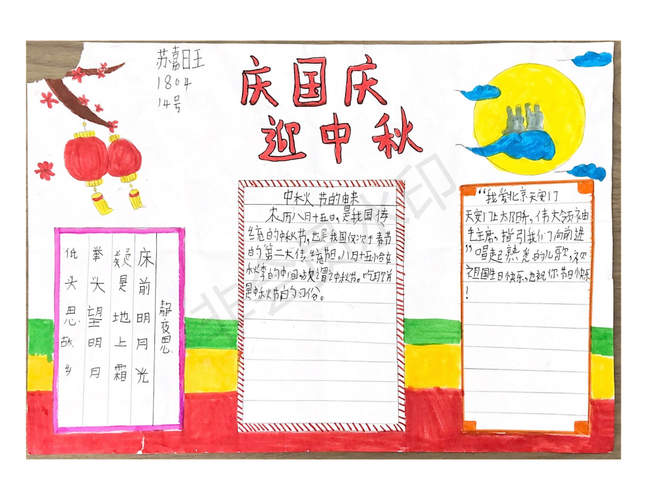 苏嘉日王
1804
14号
庆国庆
迎中秋
静夜思
床前明月光
疑是地上霜
举头望明月
低头思故乡
中秋节的由来
农历八月十五日,是我国传
统的中秋节,也是我国仅次于春节
的第二大传统节日。八月十五恰在
秋季的中间,故谓之中秋节。吃月饼
是中秋节的习俗。
"我爱北京天安门
天安门上太阳升,伟大领袖
毛主席,指引我们向前进
"唱起熟悉的儿歌,
祝国生日快乐,也祝你节日快乐
!